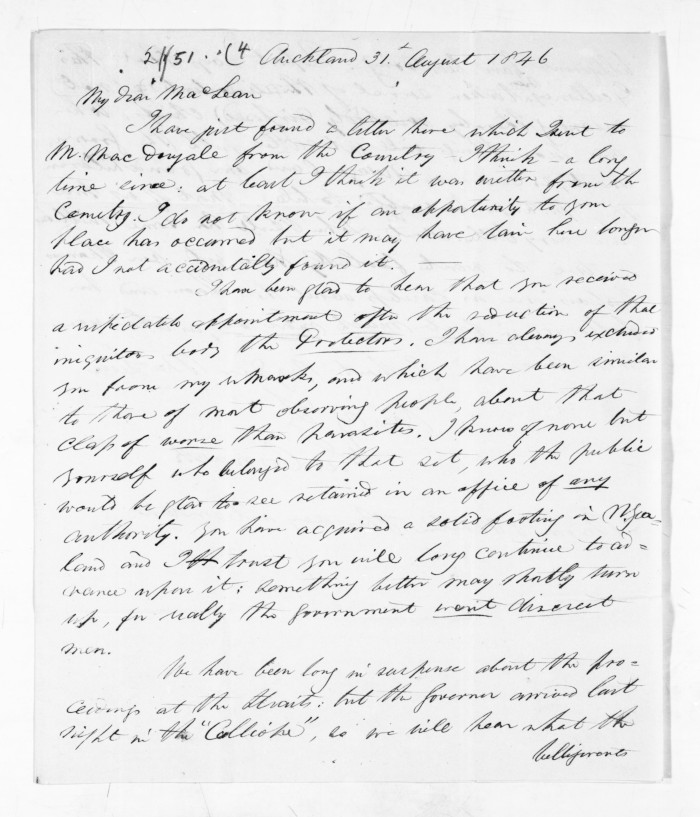 2/51 . (4 Auckland 31st August 1846
My dear MacLean
I have just found a letter here which I sent to
Mr. MacDougale from the Cometry - I think - a long
time since: at least I think it was written from the
Cometry. I do not know if an opportunity to your
place has occurred but it may have lain here longer
had I not accidentally found it. -
I have been glad to hear that you received
a respectable appointment after the reduction of that
iniquitous body the Protectors. I have always excluded
you from my remarks, and which have been similar
to those of most observing people, about that
class of worse than parasites. I know of none but
yourself who belonged to that set, who the public
would be glad to see retained in an office of any
authority. You have acquired a solid footing in N. Zea-
land and I trust you will long continue to ad-
vance upon it: something better may shortly turn
up, for really the government want discreet
men.
We have been long in suspense about the pro-
ceedings at the Straits: but the Governor arrived last
night in the "Calliope", so we will hear what the
belligerents